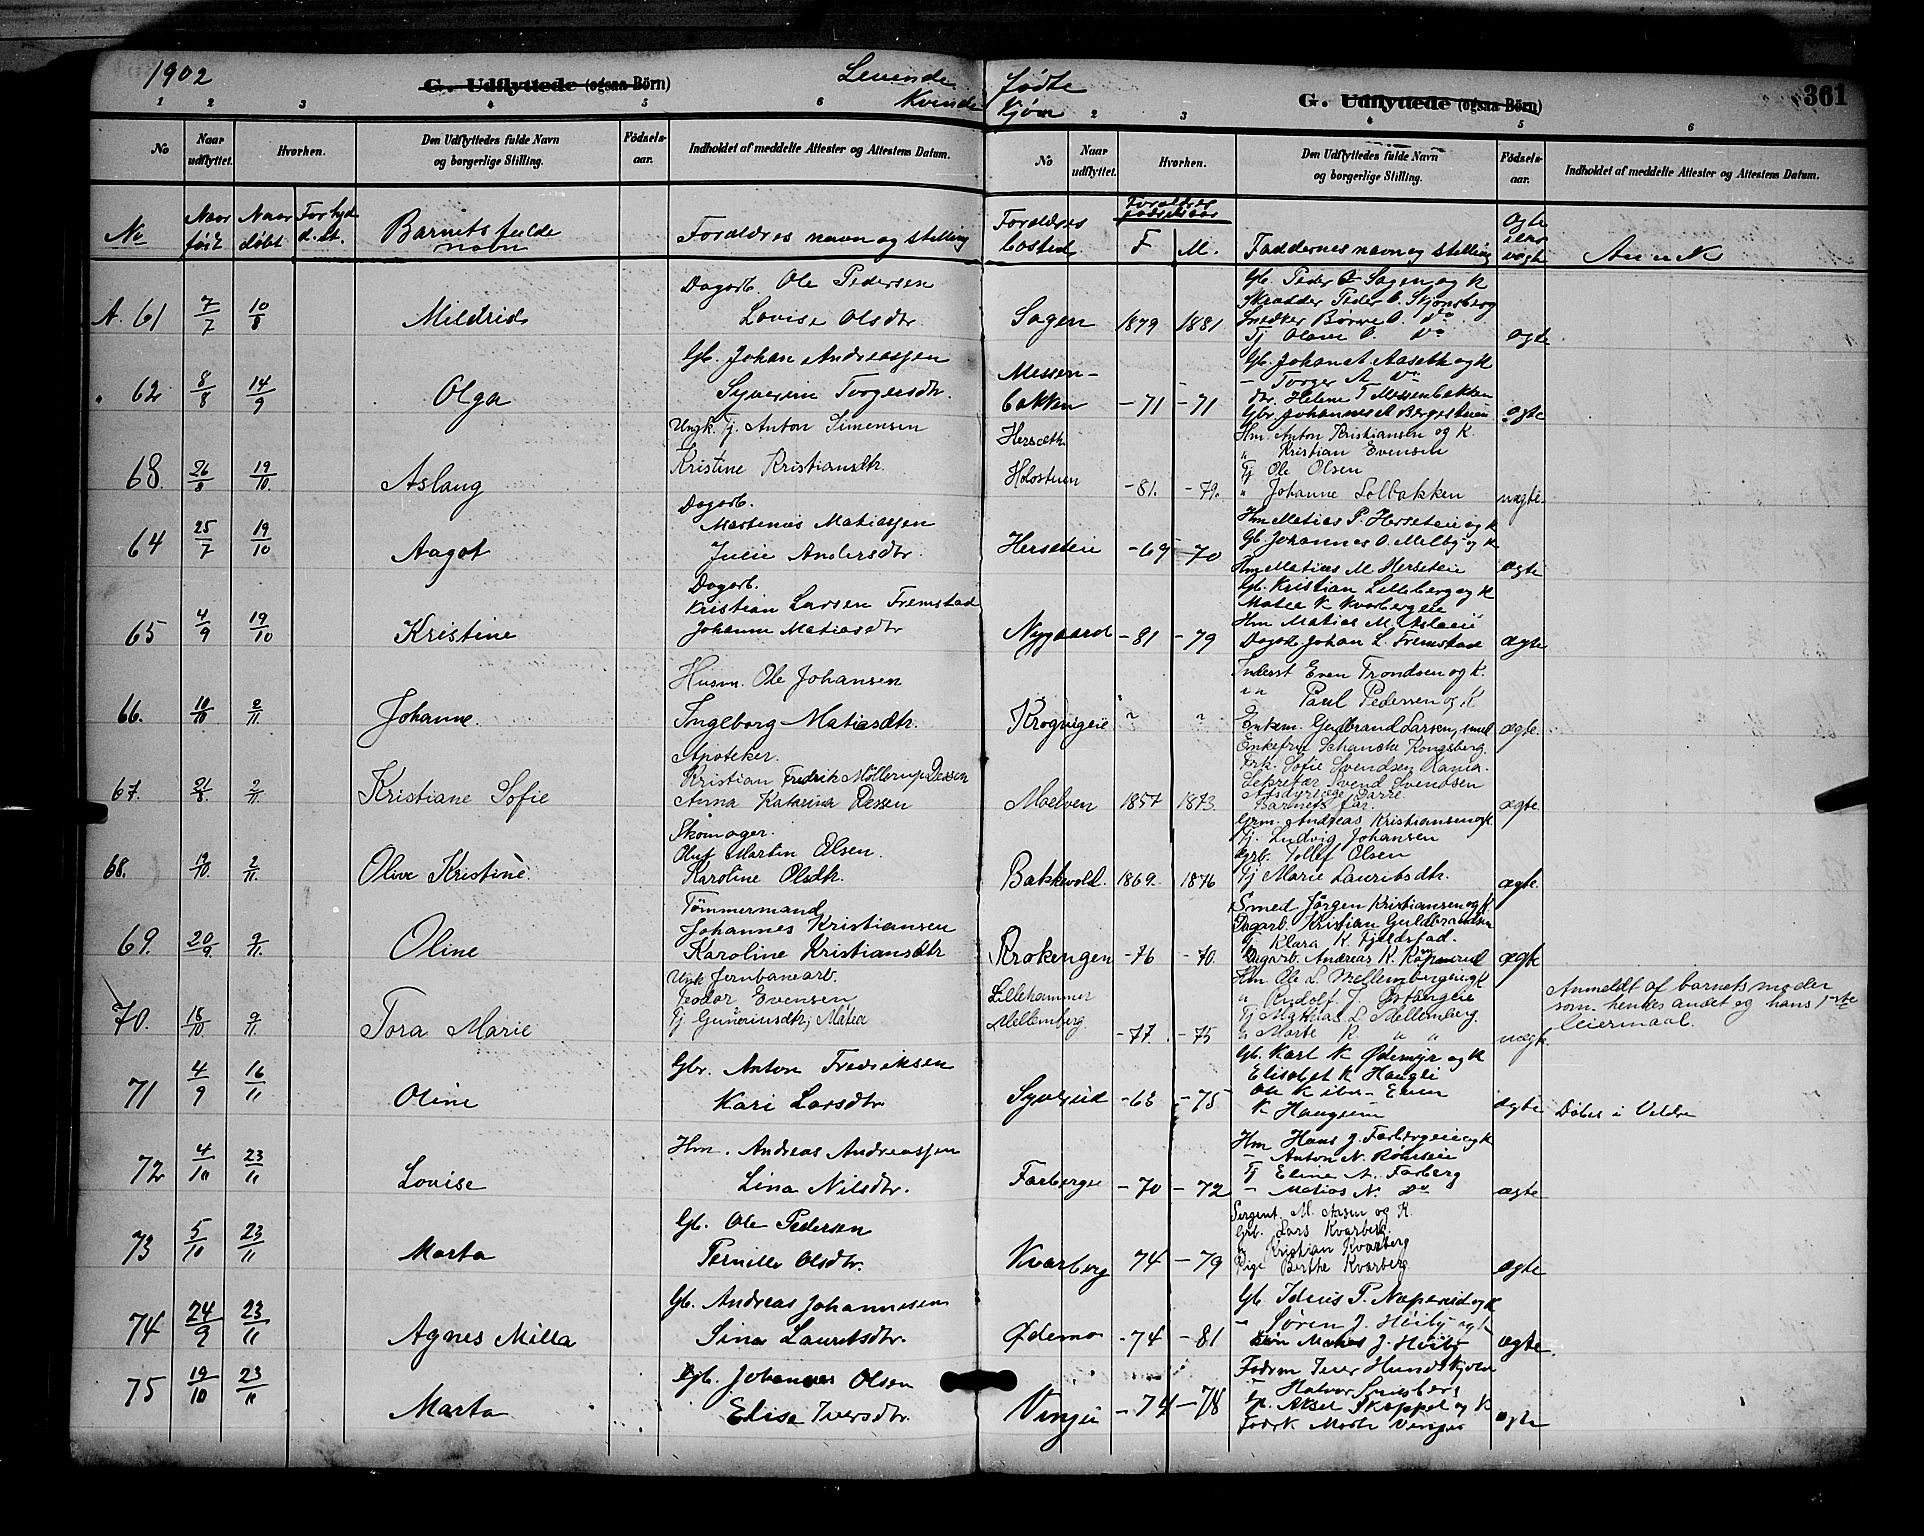 1902
G. Udflyttede (ogsaa Börn)
Levende
Kvinde
1 2 3 4 5 6
No
Naar udflyttet.
Hvorhen.
Den Udflyttedes fulde Navn
og borgerlige Stilling.
Födsels-
aar.
Indholdet af meddelte Attester og Attestens Datum.
No
Naar født
Naar døbt
Barnets fulde
navn
Forældres navn og stilling
A. 61 7/7 10/8 Mildrid
Dagarb. Ole Pedersen
Lovise Olsdtr.
" 62 8/8 14/9 Olga
Gb. Johan Andreassen
Syverine Torgersdtr.
68. 26/8 19/10 Aslaug
Ungk. Tj. Anton Simensen
Kristine Kristiansdtr.
64 25/7 19/10 Aagot
Dagarb.
Martenius Matiassen
Julie Andersdtr
65 4/9 19/10 Kristine
Dagarb.
Kristian Larsen Fremstad
Johanne Matiasdtr
66. 10/10 2/11 Johanne.
Husm. Ole Johansen
Ingeborg Matiasdtr.
67. 21/8. 2/11. Kristiane Sofie
Apoteker.
Kristian Fredrik Møllerup Dessen
Anna Katarina Dessen
68. 19/10. 2/11. Olive Kristine.
Skomager.
Oluf Martin Olsen.
Karoline Olsdtr.
69. 20/9. 9/11. Oline
Tømmermand
Johannes Kristiansen
Karoline Kristiansdtr
70. 18/10 9/11. Tora Marie
Ungk. Jernbanearb.
Teodor Evensen
Tj Guneriusdtr, Matea
71 4/9 16/11 Oline
Gbr. Anton Fredriksen
Kari Larsdtr
72 4/10 23/11 Lovise
Hm. Andreas Andreassen
Lina Nilsdtr.
73 5/10 23/11 Marta
Gb. Ole Pedersen
Pernille Olsdtr.
74 24/9 23/11 Agnes Milla
Gb. Andreas Johannesen
Sina Lauritsdtr.
75 19/10 23/11 Marta
Gb. Johannes Olsen
Elise Iversdtr.
fødte
Kjøn
G. Udflyttede (ogsaa Börn)
361
2 3 4 5 6
No
Naar
udflyttet.
Hvorhen.
Den Udflyttedes fulde Navn
og borgerlige Stilling.
Födsels-
aar.
Indholdet af meddelte Attester og Attestens Datum.
Forældres
bosted
Forældres
fødselsaar
F M.
Faddernes navn og stilling
Ægte
eller
uægte
Anm.
Gb. Peder O Sagen og K
Skrædder Peder O. Skjønsberg
Snedker Børre O. do
Tj Olave O. do
Sagen 1879 1881 ægte
Gb. Johan A. Aaseth og K
- Torger A do
dtr. Helene T Messenbakken
Messen-
bakken -71 -71 ægte
Hm. Anton Kristiansen og K.
" Kristian Evensen
Tj Ole Olsen
" Johanne Solbakken
Hersæth
Holostuen -81. -79. uægte.
Hm Matias P. Herseteie og K
Gb. Johannes O. Melby og K
Hm Matias M Herseteie
Herseteie -69 -70 ægte
Gb. Kristian Lilleberg og K
Matea K Kvarbergeie
Hm Matias M.
Dagarb. Johan L. Fremstad
Nygaard -81 -79 ægte
Inderst Even Trondsen og K.
" " Paul Pedersen og K
Enkem. Gudbrand Larsen, smed
Krogvigeie " " ægte.
Enkefru Schancke Kongsberg.
Frk. Sofie Svendsen Rania.
Sekretær Svend Svendsen
Barnets Far.
Moelven 1857 1873. ægte
Grm. Andreas Kristiansen og K.
Tj. Ludvig Johansen
Grb. Tollef Olsen
Tj Marie Lauritsdtr.
Bakkvold. 1869. 1876 ægte.
Smed Jørgen Kristiansen og K
Dagarb. Kristian Guldbrandsen
Tj Klara K. Fjeldstad.
Dagarb. Andreas K.
Krokengen -76 -70. ægte
Hm Ole L Mellembergeie og K
" Rudolf J.
Tj Mathias L Mellemberg.
" Marte K. " "
Lillehammer
Mellemberg. -77. -75 uægte
Anmeldt af barnets moder
som hendes andet og hans 1ste
leiermaal.
Gb. Karl K Ødemyr og K
Elisabet K Haugli
Ole K ibn - Even
K Haugeün
Syverud -63 -75. ægte Døbt i Veldre
Hm Hans J. Farbergeie og K
- Anton N.
Tj Eline A. Farberg
- Matias N. do
Farbergeie -70 -72 ægte
Sergent. M. Aasen og K.
Grb. Lars Kvarberg.
" Kristian Kvarberg
Pige Berthe Kvarberg
Kvarberg 74 -79 ægte
Gb. Idius P. Næperud og K
- Søren J. Heiby og K
J. Heiby
Ødemo -74 -81 ægte.
Fodrm Iver
- Halvor
Gb. Aksel Skappel og K
Fodrk Marte Vinjei
Vinjei -74 -78 ægte